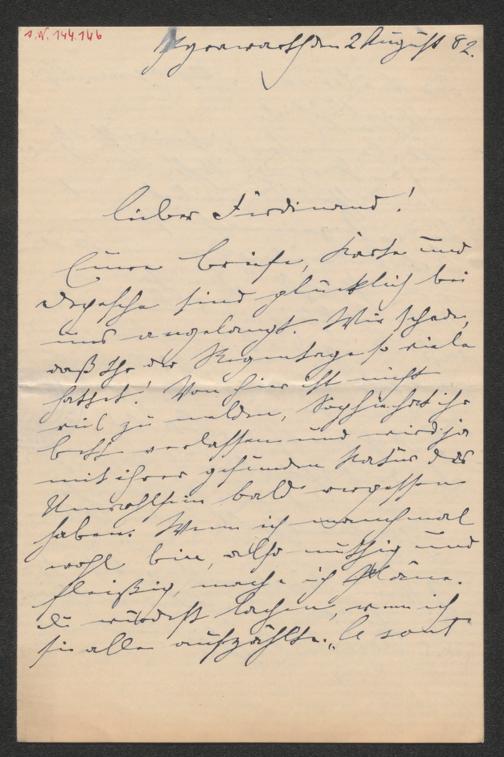 A.N. 144.146
Pyrawarth den 2 August 82.
lieber Ferdinand!
Eure briefe, Karte und
depesche sind glücklich bei
uns angelangt. Wie schade,
daß Ihr der Regentage so viele
hattet! Von hier ist nicht
viel zu melden, Sophie hat ihr
bett verlassen und wird ja
mit ihrer gesunden Natur das
Unwohlsein bald vergessen
haben. Wenn ich manchmal
wohl bin, also muthig und
fleißig, mache ich Pläne.
du würdest lachen, wenn ich
sie alle aufzählte. „Ce sont